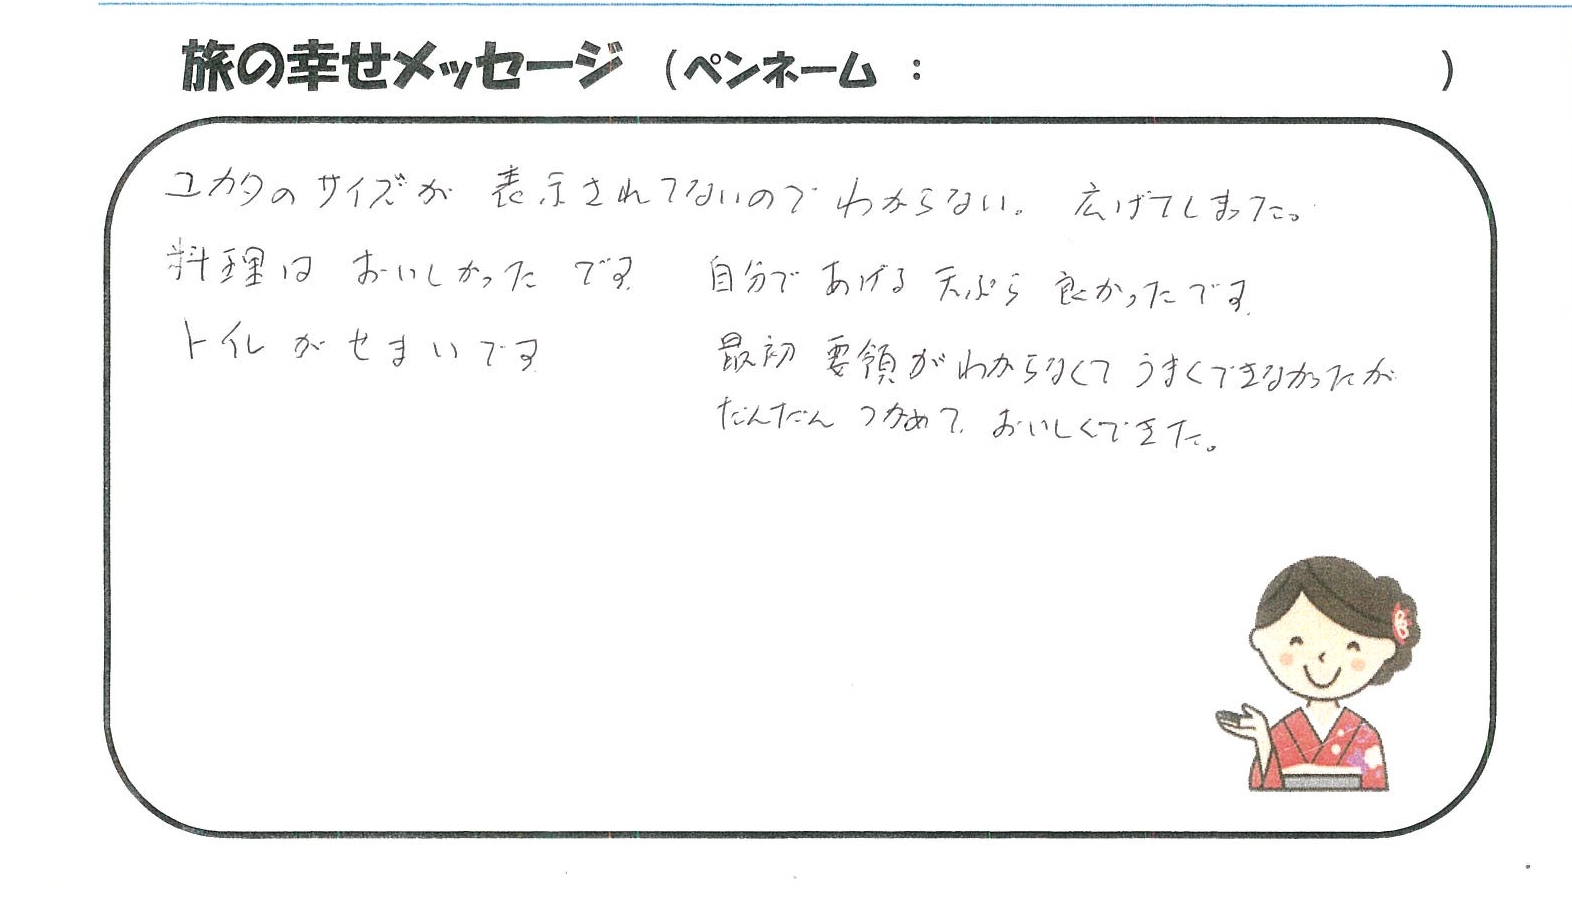 旅の幸せメッセージ (ペンネーム : )
ユカタのサイズが 表示されてないのでわからない。 広げてしまった。
料理は おいしかった です 自分であげる 天ぷら 良かったです
トイレがせまいです 最初 要領がわからなくて うまくできなかったが
だんだん つかめて、おいしくできた。